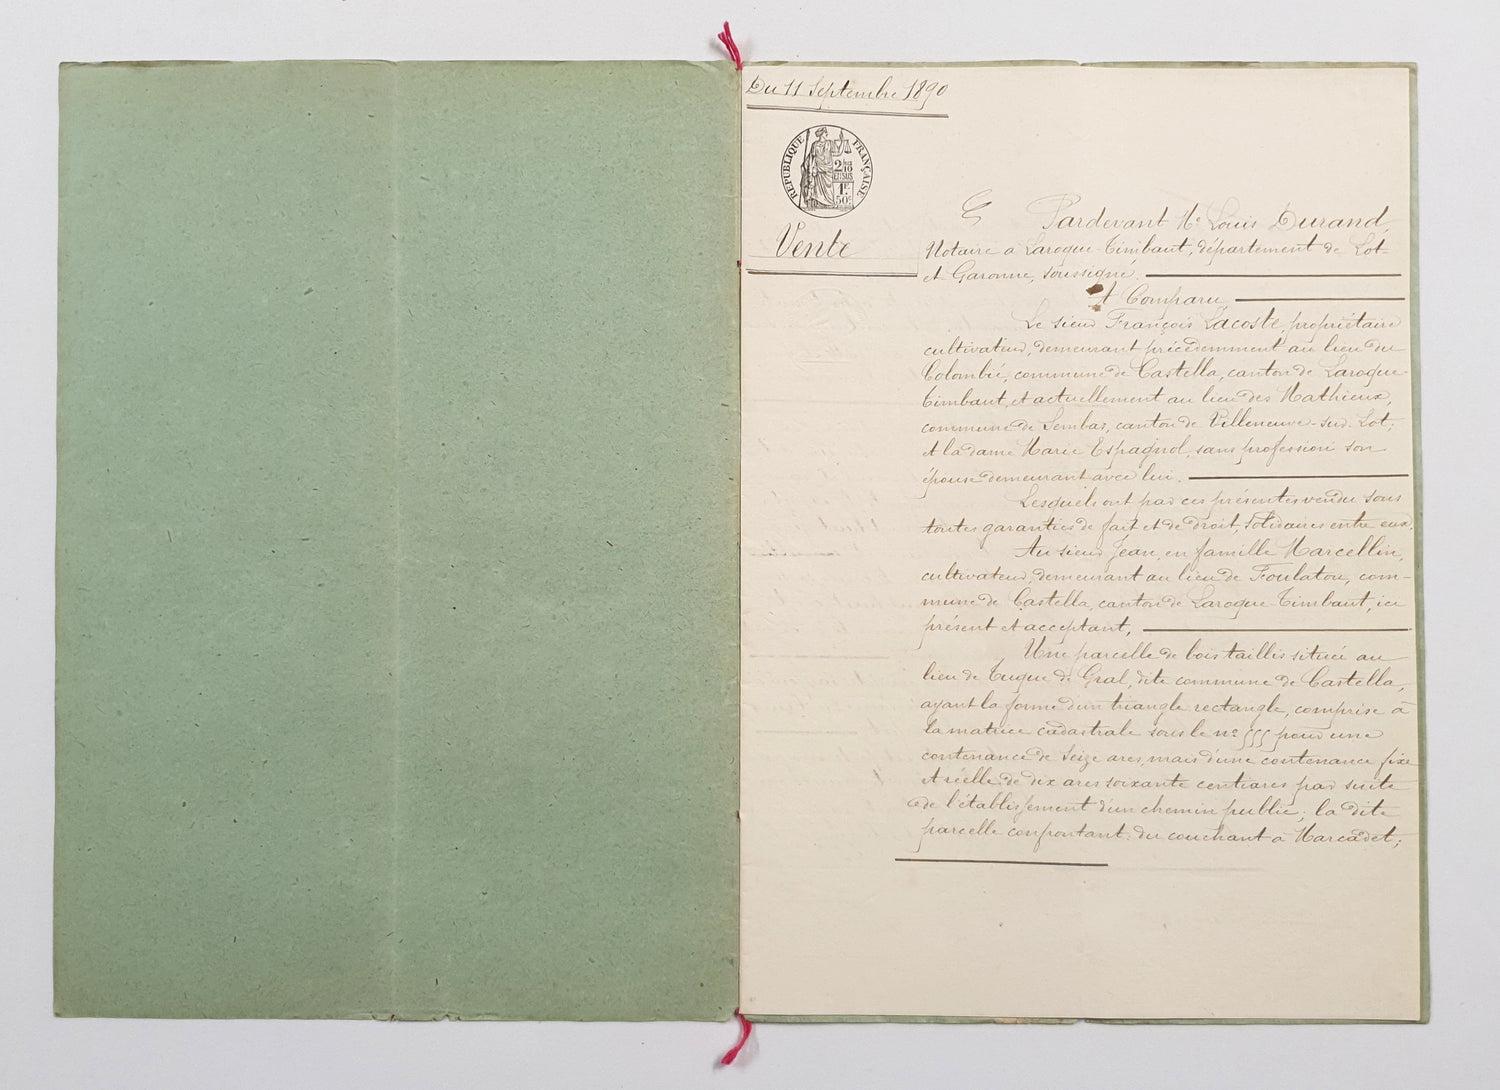 Du 11 Septembre 1890
RÉPUBLIQUE FRANÇAISE
2/10
EN SUS
1F.
50c.
Vente
Pardevant Me Louis Durand,
Notaire à Laroque-Timbaut, département de Lot-
et Garonne, soussigné.
A Comparu
Le sieur François Lacoste, propriétaire
cultivateur, demeurant précédemment au lieu du
Colombié, commune de Castella, canton de Laroque-
Timbaut, et actuellement au lieu des Mathieux,
commune de Sembas, canton de Villeneuve-sur-Lot;
et la dame Marie Espagnol, sans profession son
épouse demeurant avec lui.
Lesquels ont par ces présentes vendu sous
toutes garanties de fait et de droit, solidaires entre eux,
Au sieur Jean, en famille Marcellin,
cultivateur, demeurant au lieu de Foulatou, com-
mune de Castella, canton de Laroque-Timbaut, ici
présent et acceptant,
Une parcelle de bois taillis située au
lieu de Tuque de Gral, dite commune de Castella,
ayant la forme d'un triangle rectangle, comprise à
la matrice cadastrale sous le no 555 pour une
contenance de seize ares, mais d'une contenance fixe
et réelle de dix ares soixante centiares par suite
de l'établissement d'un chemin public; la dite
parcelle confrontant: du couchant à Marcadet;